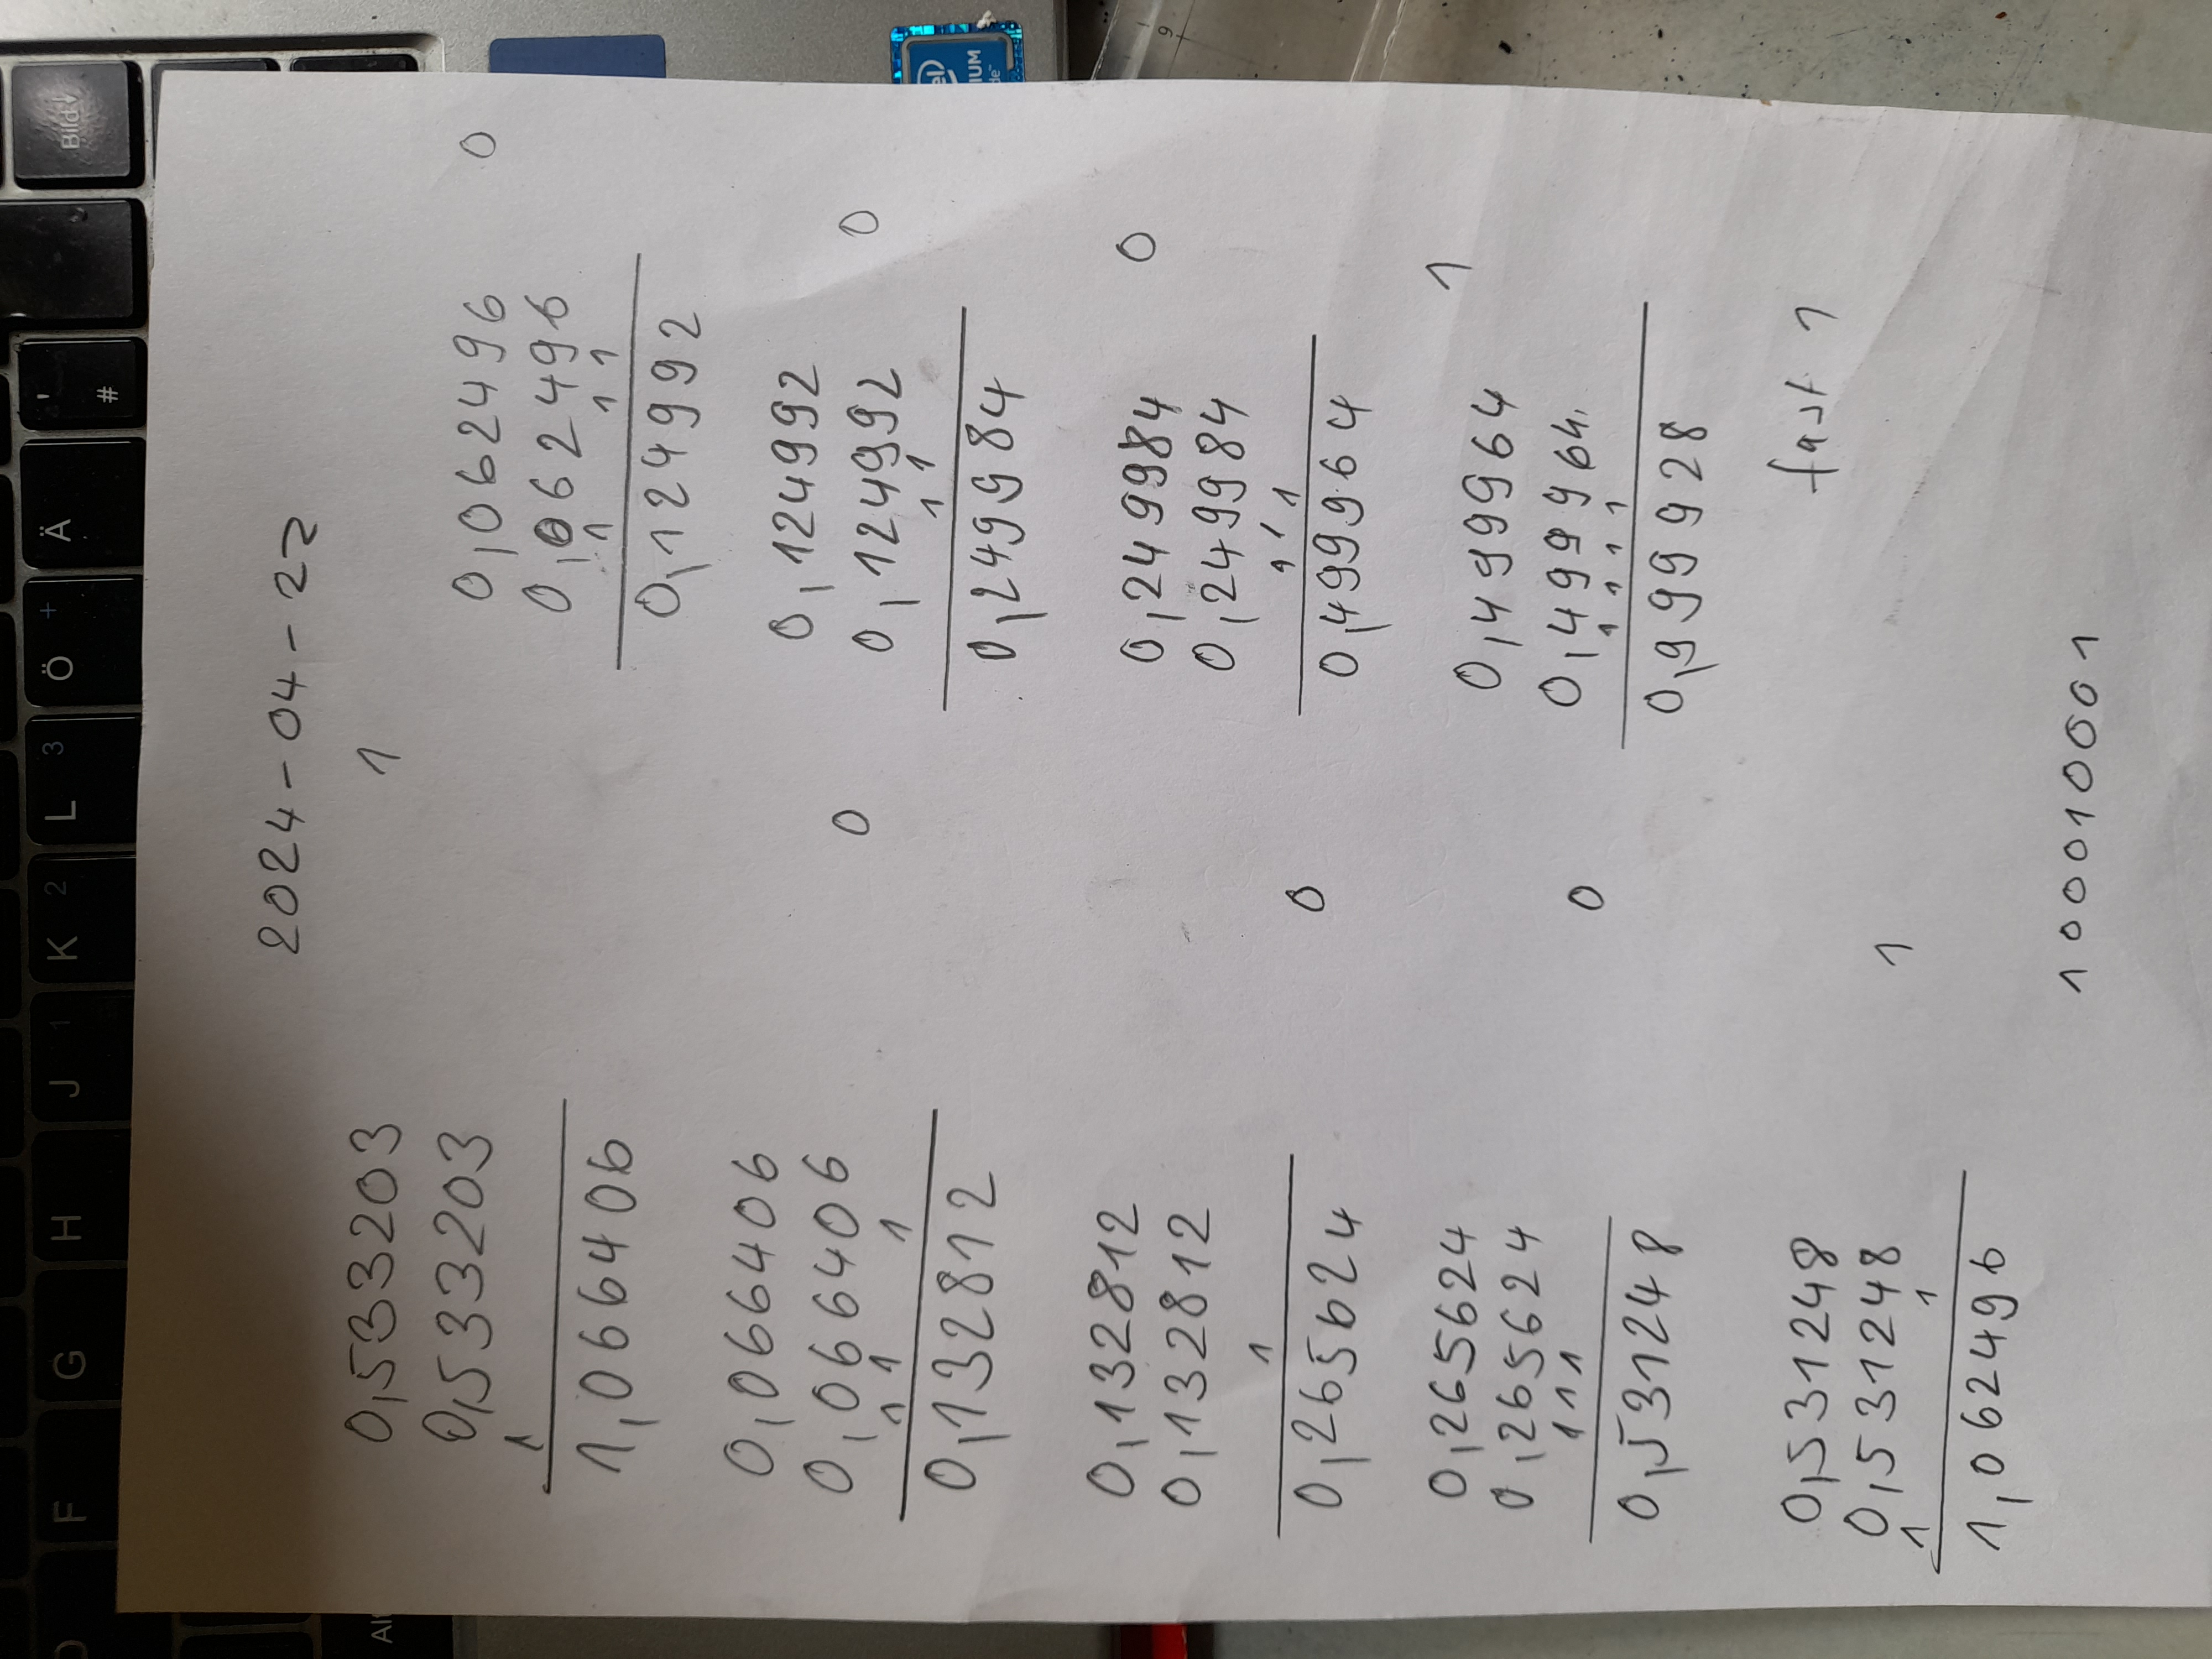 2024-04-22
1
0,533203
0,533203
1
1,066406
0
0,066406
0,066406
1 1 1
0,132812
0
0,132812
0,132812
1
0,265624
0
0,265624
0,265624
1 1 1
0,531248
1
0,531248
0,531248
1 1
1,062496
0
0,062496
0,062496
1 1 1
0,124992
0
0,124992
0,124992
1 1
0,249984
0
0,249984
0,249984
1 1 1
0,499964
1
0,499964
0,499964
1 1 1 1
0,999928
fast 1
100010001
Bild↓
' #
Ä
Ö +
L 3
K 2
J 1
H
G
F
D
Alt
intel
6